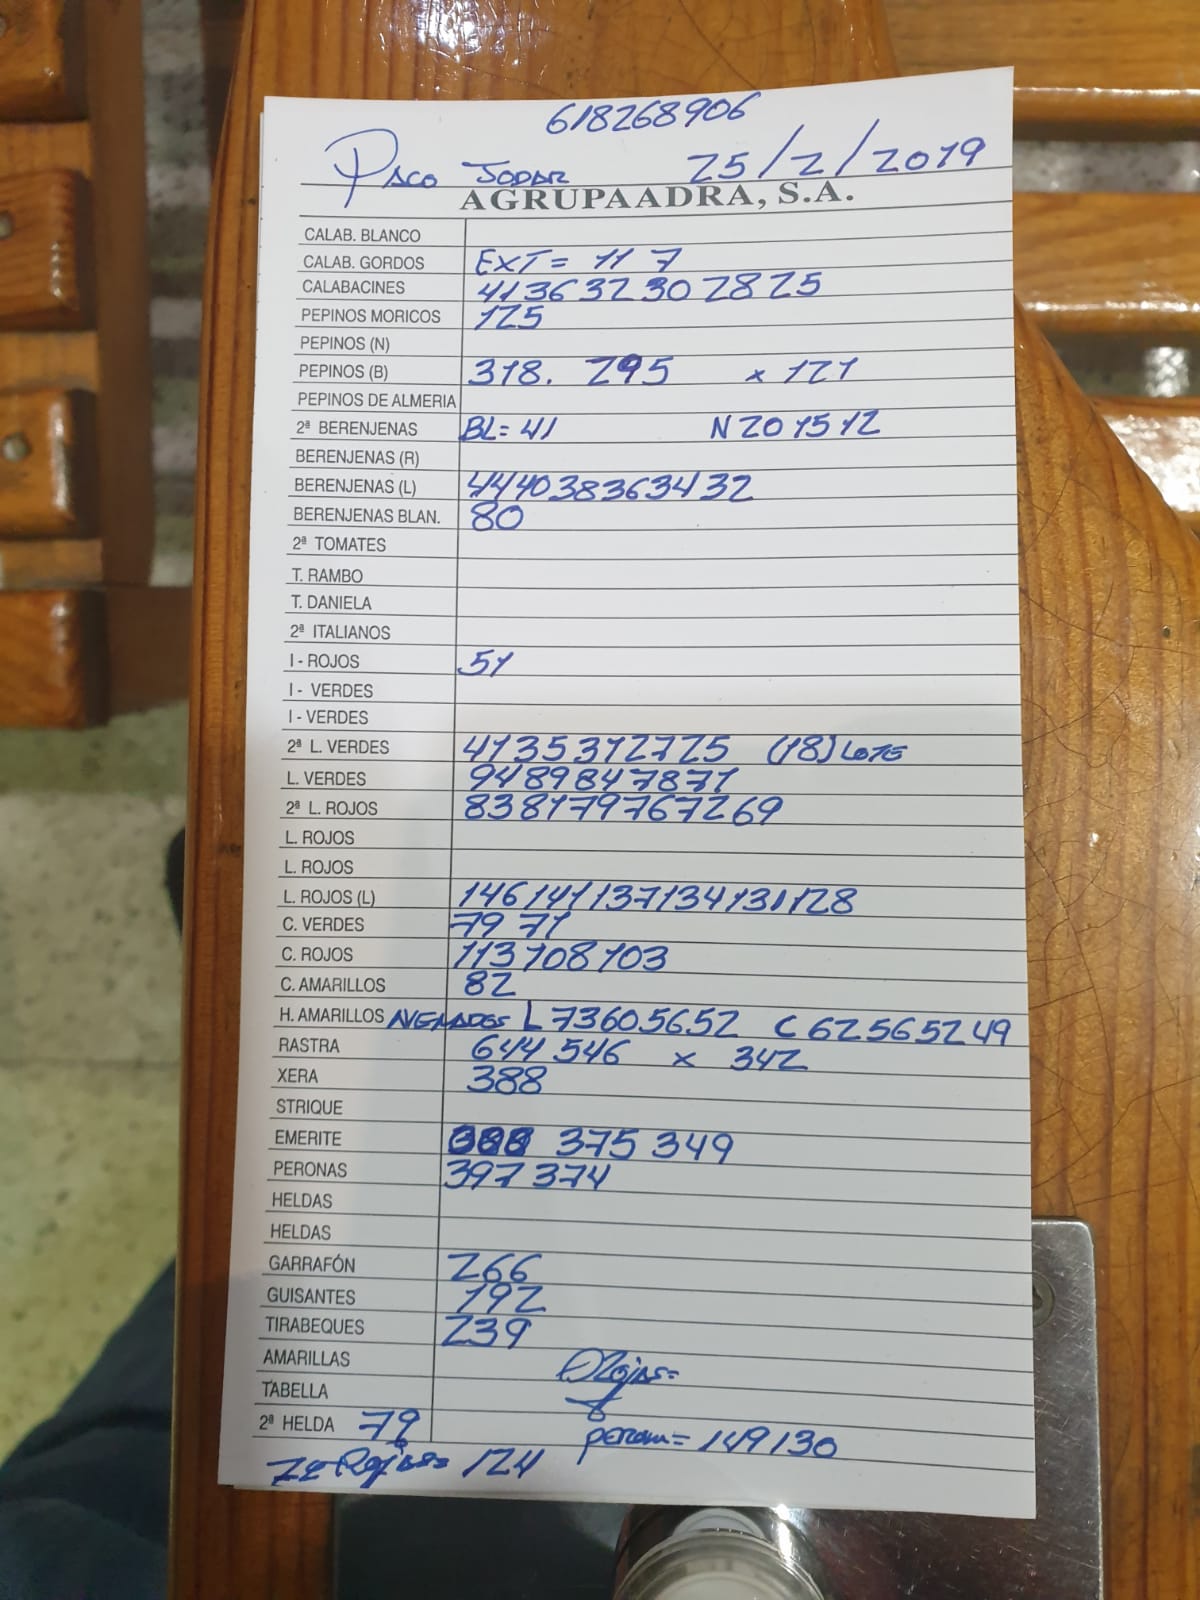 618268906
Paco Jodar 25/2/2019
AGRUPAADRA, S.A.
CALAB. BLANCO
CALAB. GORDOS EXT = 11 7
CALABACINES 41363230 2825
PEPINOS MORICOS 125
PEPINOS (N)
PEPINOS (B) 318. 295 x 121
PEPINOS DE ALMERIA
2ª BERENJENAS BL= 41 N 20 15 12
BERENJENAS (R)
BERENJENAS (L) 444038363432
BERENJENAS BLAN. 80
2ª TOMATES
T. RAMBO
T. DANIELA
2ª ITALIANOS
I - ROJOS 51
I - VERDES
I - VERDES
2ª L. VERDES 4135312725 (18) LOTE
L. VERDES 9489847871
2ª L. ROJOS 838179767269
L. ROJOS
L. ROJOS
L. ROJOS (L) 146141137134131128
C. VERDES 79 71
C. ROJOS 113108103
C. AMARILLOS 82
H. AMARILLOS L 73605652 C 62565249
RASTRA 644 546 x 342
XERA 388
STRIQUE
EMERITE 375 349
PERONAS 397 374
HELDAS
HELDAS
GARRAFÓN 266
GUISANTES 192
TIRABEQUES 239
AMARILLAS
TABELLA
2ª HELDA 79
perona= 149130
Rojas= 124